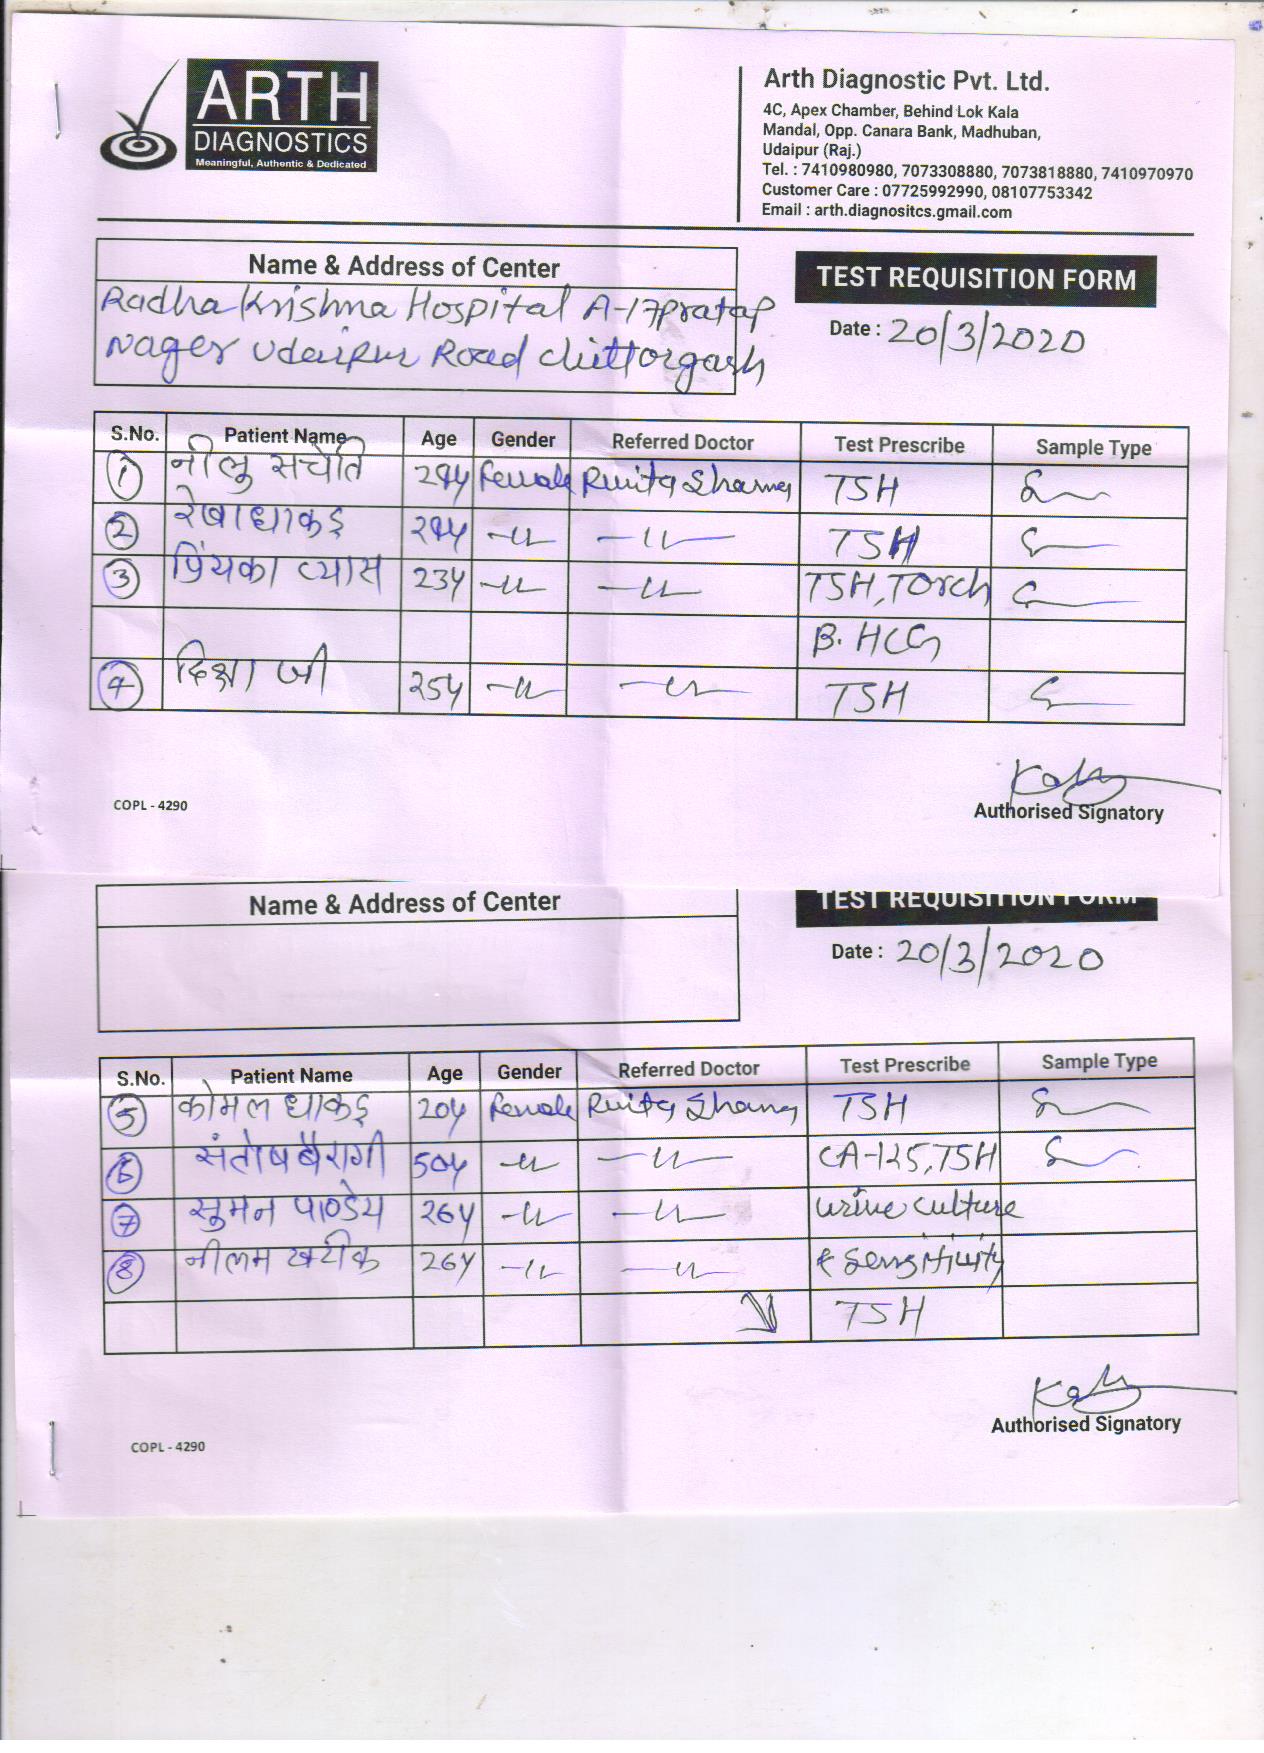 ARTH
DIAGNOSTICS
Meaningful, Authentic & Dedicated
Arth Diagnostic Pvt. Ltd.
4C, Apex Chamber, Behind Lok Kala
Mandal, Opp. Canara Bank, Madhuban,
Udaipur (Raj.)
Tel. : 7410980980, 7073308880, 7073818880, 7410970970
Customer Care : 07725992990, 08107753342
Email : arth.diagnositcs.gmail.com
Name & Address of Center
Radha Krishna Hospital A-17 Pratap
Nager Udaipur Road Chittorgarh
TEST REQUISITION FORM
Date : 20/3/2020
S.No. Patient Name Age Gender Referred Doctor Test Prescribe Sample Type
1 नीलु संचेति 29y Female Sharma TSH
2 रेखा धाकड़ 29y -11- -11- TSH
3 प्रियंका व्यास 23y -11- -11- TSH, TORCH
B. HCG
4 दिक्षा जी 25y -11- -11- TSH
COPL - 4290
Authorised Signatory
Name & Address of Center
TEST REQUISITION FORM
Date : 20/3/2020
S.No. Patient Name Age Gender Referred Doctor Test Prescribe Sample Type
5 कोमल धाकड़ 20y Female TSH
6 संतोष बैरागी 50y -11- -11- CA-125, TSH
7 सुमन पाण्डेय 26y -11- -11- urine culture
8 नीलम खटीक 26y -11- -11- & Sensitivity
TSH
COPL - 4290
Authorised Signatory